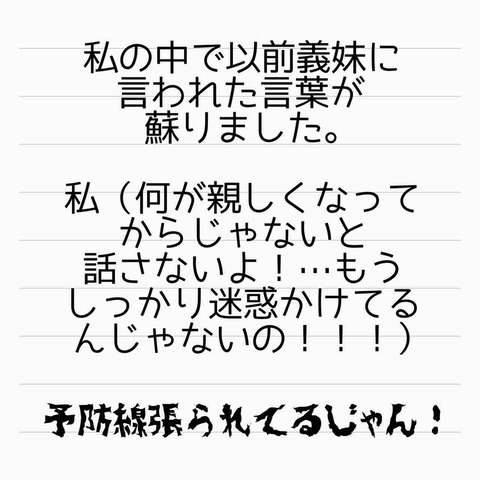 私の中で以前義妹に
言われた言葉が
蘇りました。
私（何が親しくなって
からじゃないと
話さないよ！…もう
しっかり迷惑かけてる
んじゃないの！！！）
予防線張られてるじゃん！